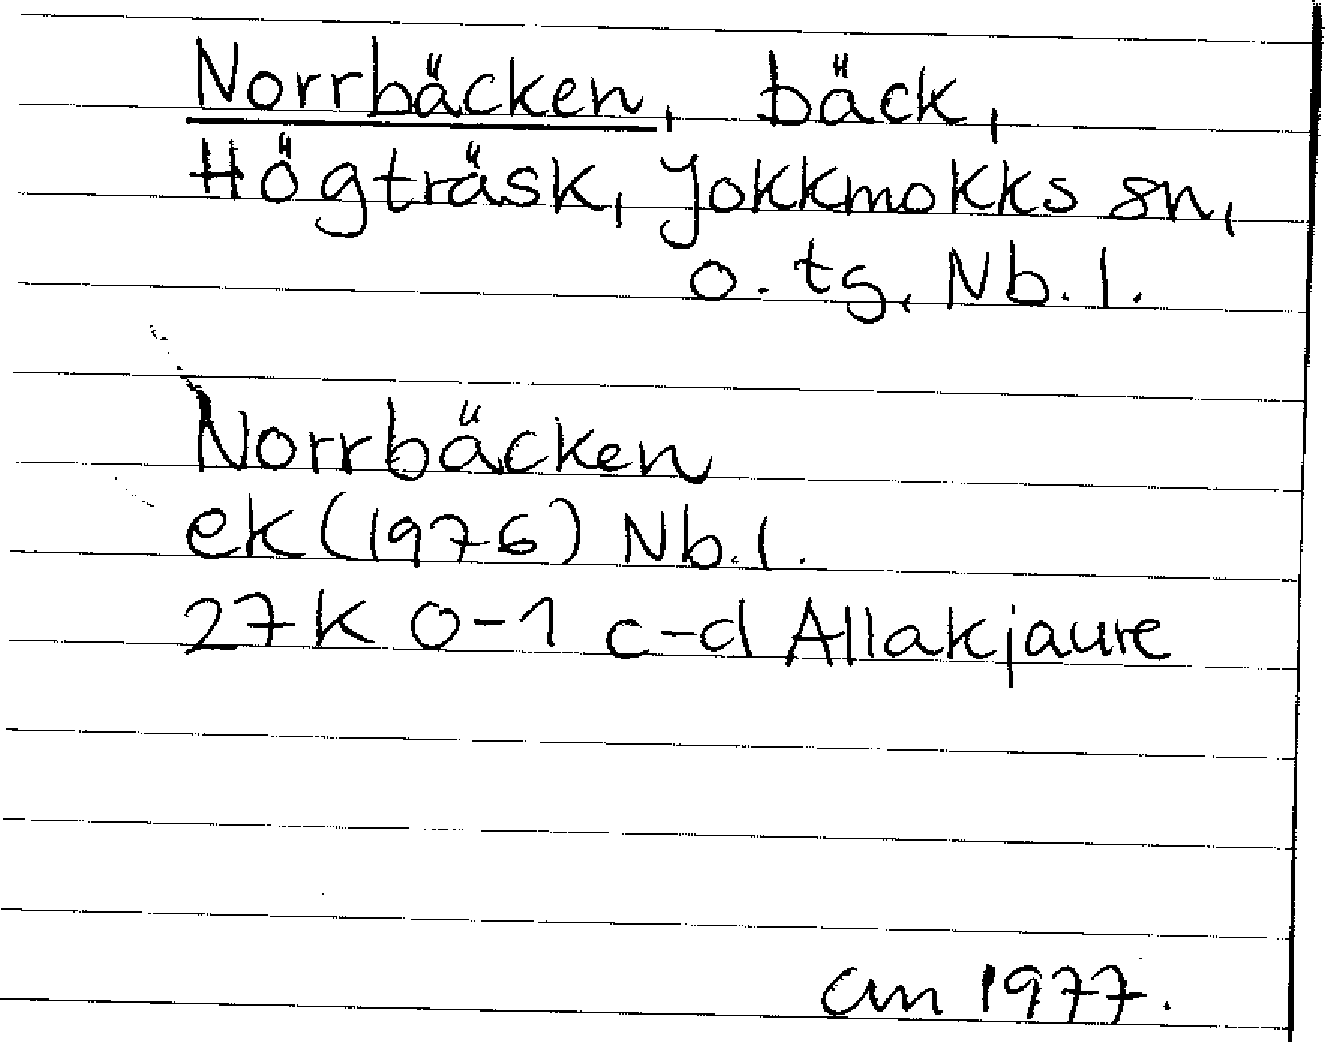 Norrbäcken, bäck,
Högträsk, Jokkmokks sn,
o. tg, Nb. l.
Norrbäcken
ek (1976) Nb. l.
27 K 0-1 c-d Allakjaure
am 1977.